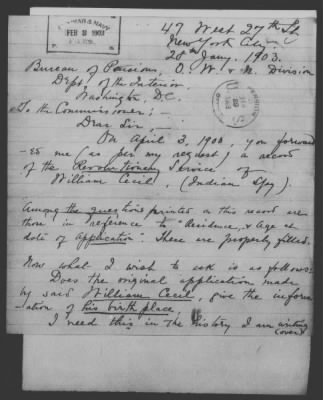 47 West 27th St
New York City
28th Jany. 1903.
FEB 2 1903
Bureau of Pensions, O. W. & N. Division
Dept. of the Interior,
Washington, D.C.
To the Commissioner; -
Dear Sir, -
On April 3, 1900, you forward
-ed me (as per my request) a record
of the Revolutionary Service of
William Cecil, (Indian Spy).
Among the questions printed on this record are
those in "reference to Residence, & Age at
date of Application". These are properly filled.
Now what I wish to ask is as follows:
Does the original application made
by said William Cecil, give the inform
-ation of his birth place,
I need this in the history I am writing
(over)